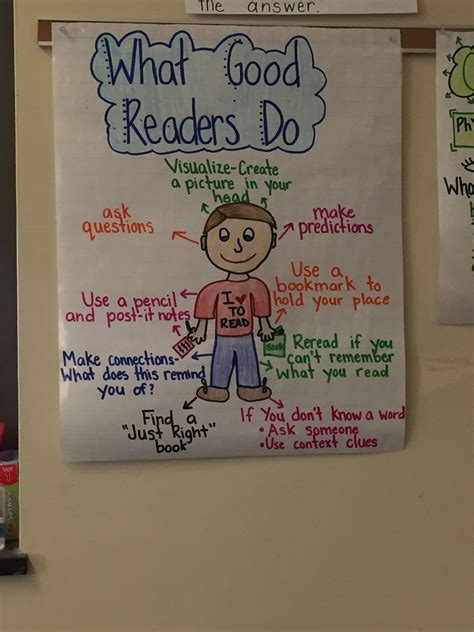 the answer.
What Good
Readers Do
Visualize-Create
a picture in your
head
ask
questions
make
predictions
Use a pencil
and post-it notes
Use a
bookmark to
hold your place
I ♥
TO
READ
Book
Make connections-
What does this remind
you of?
Reread if you
can't remember
what you read
Find a
"Just Right"
book
If You don't know a word
• Ask someone
• Use context clues